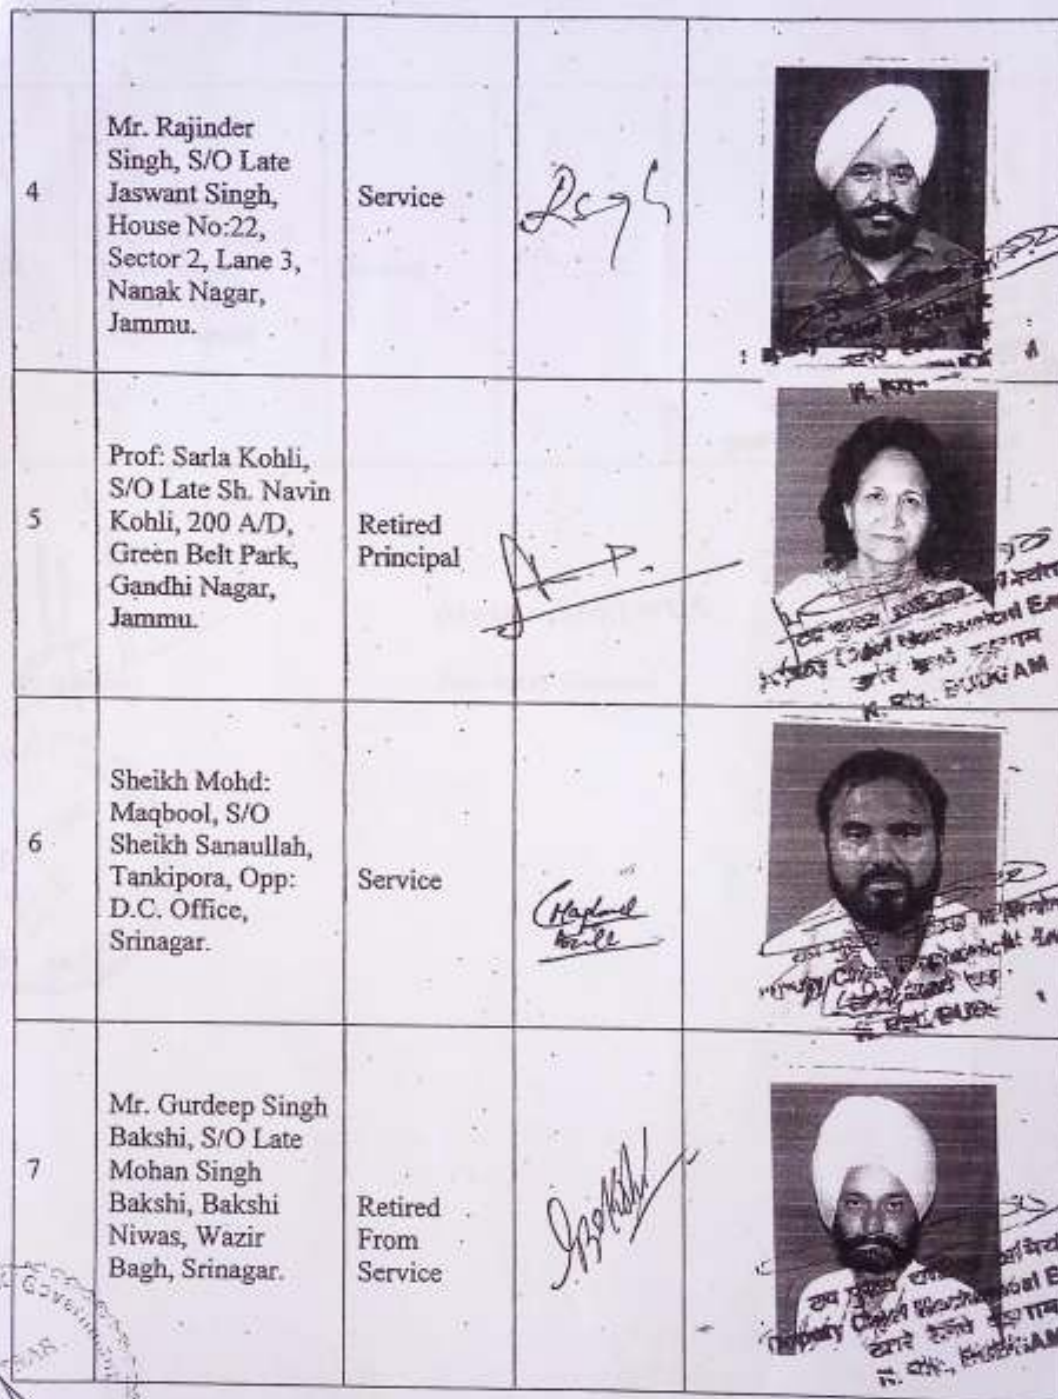 4
Mr. Rajinder
Singh, S/O Late
Jaswant Singh,
House No:22,
Sector 2, Lane 3,
Nanak Nagar,
Jammu.
Service
5
Prof: Sarla Kohli,
S/O Late Sh. Navin
Kohli, 200 A/D,
Green Belt Park,
Gandhi Nagar,
Jammu.
Retired
Principal
BUDGAM
6
Sheikh Mohd:
Maqbool, S/O
Sheikh Sanaullah,
Tankipora, Opp:
D.C. Office,
Srinagar.
Service
7
Mr. Gurdeep Singh
Bakshi, S/O Late
Mohan Singh
Bakshi, Bakshi
Niwas, Wazir
Bagh, Srinagar.
Retired
From
Service
Deputy Chief